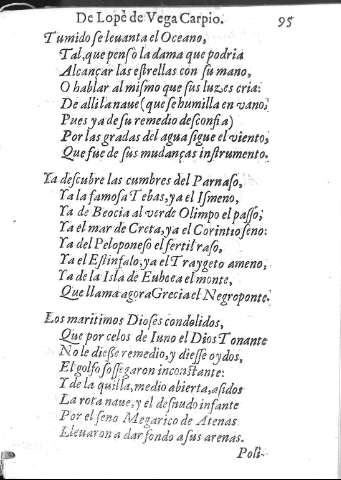 De Lope de Vega Carpio. 95
Tumido se leuanta el Oceano,
Tal, que penso la dama que podria
Alcançar las estrellas con su mano,
O hablar al mismo que sus luzes cria:
De alli la naue (que se humilla en vano,
Pues ya de su remedio desconfia)
Por las gradas del agua sigue el viento,
Que fue de sus mudanças instrumento.
Ya descubre las cumbres del Parnaso,
Ya la famosa Tebas, ya el Ismeno,
Ya de Beocia al verde Olimpo el passo,
Ya el mar de Creta, ya el Corintio seno:
Ya del Peloponeso el fertil raso,
Ya el Estinfalo, ya el Traygeto ameno,
Ya de la Isla de Euboea el monte,
Que llama agora Grecia el Negroponte.
Los maritimos Dioses condolidos,
Que por celos de Iuno el Dios Tonante
No le diesse remedio, y diesse oydos,
El golfo sossegaron inconstante:
Y de la quilla, medio abierta, asidos
La rota naue, y el desnudo infante
Por el seno Megarico de Atenas
Lleuaron a dar fondo a sus arenas.
Posi-